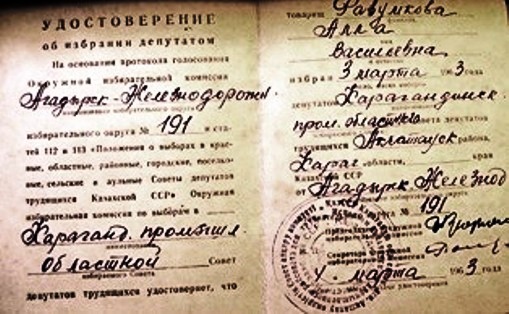 УДОСТОВЕРЕНИЕ
об избрании депутатом
На основании протокола голосования
Окружной избирательной комиссии
Агадырск-Железнодорожн.
избирательного округа № 191 и ста-
тей 112 и 113 «Положения о выборах в крае-
вые, областные, районные, городские, поселко-
вые, сельские и аульные Советы депутатов
трудящихся Казахской ССР» Окружная
избирательная комиссия по выборам в
Караганд. промышл.
областной Совет
депутатов трудящихся удостоверяет, что
товарищ
Алла
Васильевна
избран 3 марта 1963 года
депутатом Карагандинск.
пром. областного Совета депутатов
трудящихся района,
Караг. области, края
Казахской ССР
от Агадырск. Железнод
избирательного округа № 191
4. марта 1963 года